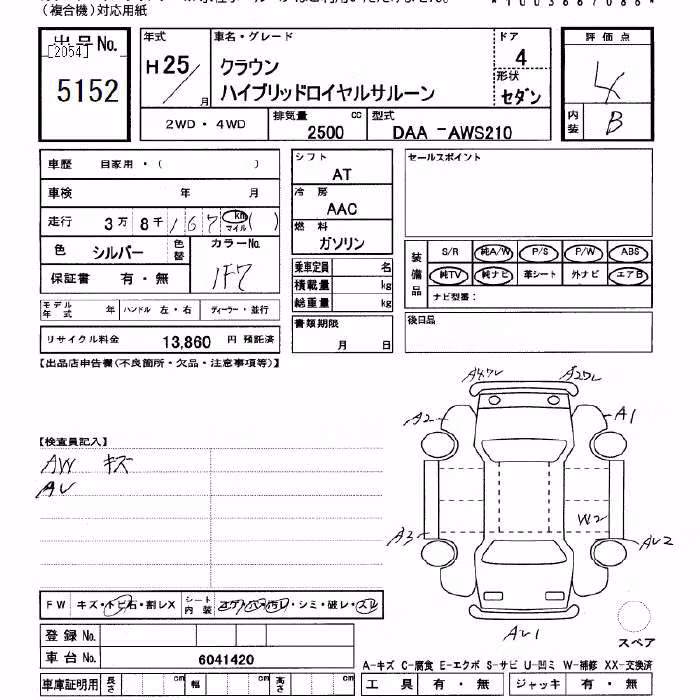 (複合機)対応用紙
出品No.
[2054]
5152
年式
H25/ 月
車名・グレード
クラウン
ハイブリッドロイヤルサルーン
ドア
4
形状
セダン
評価点
4
内装 B
2WD・4WD
排気量 2500 cc
型式 DAA -AWS210
車歴 自家用・( )
車検 年 月
走行 3万 8千 167 km マイル ( )
色 シルバー 色替
カラーNo.
1F7
保証書 有・無
モデル年式 年 ハンドル 左・右 ディーラー・並行
リサイクル料金 13,860 円 預託済
シフト
AT
冷房
AAC
燃料
ガソリン
乗車定員 名
積載量 kg
総重量 kg
書類期限
月 日
セールスポイント
装備品
S/R 純A/W P/S P/W ABS
純TV 純ナビ 革シート 外ナビ エアB
ナビ型番:
後日品
【出品店申告欄(不良箇所・欠品・注意事項等)】
【検査員記入】
AW キズ
AU
A2
A1
A3
W2
AU2
AU1
スペア
FW キズ・トビ石・割レX
シート内装 コゲ・穴・汚レ・シミ・破レ・スレ
登録No.
車台No. 6041420
A-キズ C-腐食 E-エクボ S-サビ U-凹ミ W-補修 XX-交換済
車庫証明用 長さ cm 幅 cm 高さ cm
工具 有・無 ジャッキ 有・無